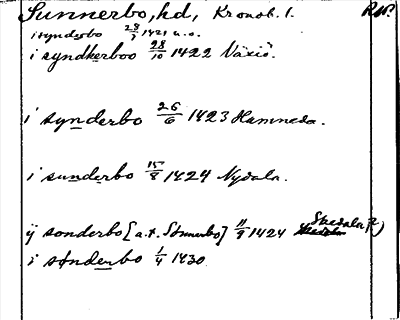 Sunnerbo, hd, Kronob. l. RW.
i synderbo 28/7 1421 u.o.
i syndkerboo 28/10 1422 Växiö.
i synderbo 26/6 1423 Hamneda.
i sunderbo 15/8 1424 Nydala.
ÿ sonderbo [a.t. Sønnerbo] 11/9 1424 Skedala (?)
i sønderbo 1/4 1430